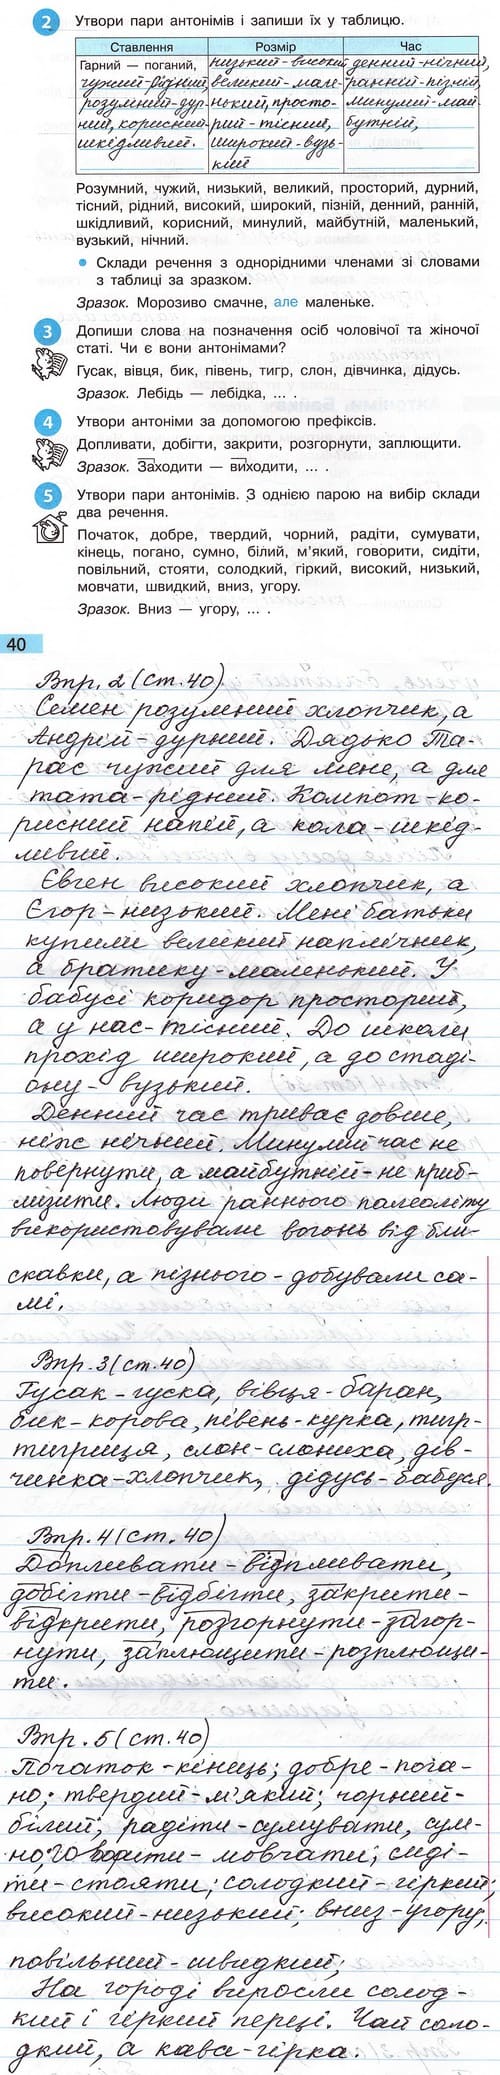 2 Утвори пари антонімів і запиши їх у таблицю.
Ставлення Розмір Час
Гарний — поганий, низький-високий денний-нічний,
чужий-рідний, великий-мале- ранній-пізній,
розумний-дур- нький, просто- минулий-май-
ний, корисний- рий-тісний, бутній,
шкідливий. широкий-вузь-
кий
Розумний, чужий, низький, великий, просторий, дурний,
тісний, рідний, високий, широкий, пізній, денний, ранній,
шкідливий, корисний, минулий, майбутній, маленький,
вузький, нічний.
• Склади речення з однорідними членами зі словами
з таблиці за зразком.
Зразок. Морозиво смачне, але маленьке.
3 Допиши слова на позначення осіб чоловічої та жіночої
статі. Чи є вони антонімами?
Гусак, вівця, бик, півень, тигр, слон, дівчинка, дідусь.
Зразок. Лебідь — лебідка, ... .
4 Утвори антоніми за допомогою префіксів.
Допливати, добігти, закрити, розгорнути, заплющити.
Зразок. Заходити — виходити, ... .
5 Утвори пари антонімів. З однією парою на вибір склади
два речення.
Початок, добре, твердий, чорний, радіти, сумувати,
кінець, погано, сумно, білий, м'який, говорити, сидіти,
повільний, стояти, солодкий, гіркий, високий, низький,
мовчати, швидкий, вниз, угору.
Зразок. Вниз — угору, ... .
40
Впр. 2 (ст. 40)
Семен розумний хлопчик, а
Андрій-дурний. Дядько Та-
рас чужий для мене, а для
тата-рідний. Компот-ко-
рисний напій, а кола-шкід-
ливий.
Євген високий хлопчик, а
Єгор-низький. Мені батьки
купили великий наплічник,
а братику-маленький. У
бабусі коридор просторий,
а у нас-тісний. До школи
прохід широкий, а до стаді-
ону-вузький.
Денний час триває довше,
ніж нічний. Минулий час не
повернути, а майбутній-не приб-
лизити. Люди раннього палеоліту
використовували вогонь від бли-
скавки, а пізнього-добували са-
мі.
Впр. 3 (ст. 40)
Гусак-гуска, вівця-баран,
бик-корова, півень-курка, тигр-
тигриця, слон-слониха, дів-
чинка-хлопчик, дідусь-бабуся.
Впр. 4 (ст. 40)
Допливати-відпливати,
добігти-відбігти, закрити-
відкрити, розгорнути-загор-
нути, заплющити-розплющи-
ти.
Впр. 5 (ст. 40)
Початок-кінець; добре-пога-
но; твердий-м'який; чорний-
білий; радіти-сумувати, сум-
но; говорити-мовчати; сиді-
ти-стояти; солодкий-гіркий;
високий-низький; вниз-угору;
повільний-швидкий;
На городі виросли солод-
кий і гіркий перці. Чай соло-
дкий, а кава-гірка.